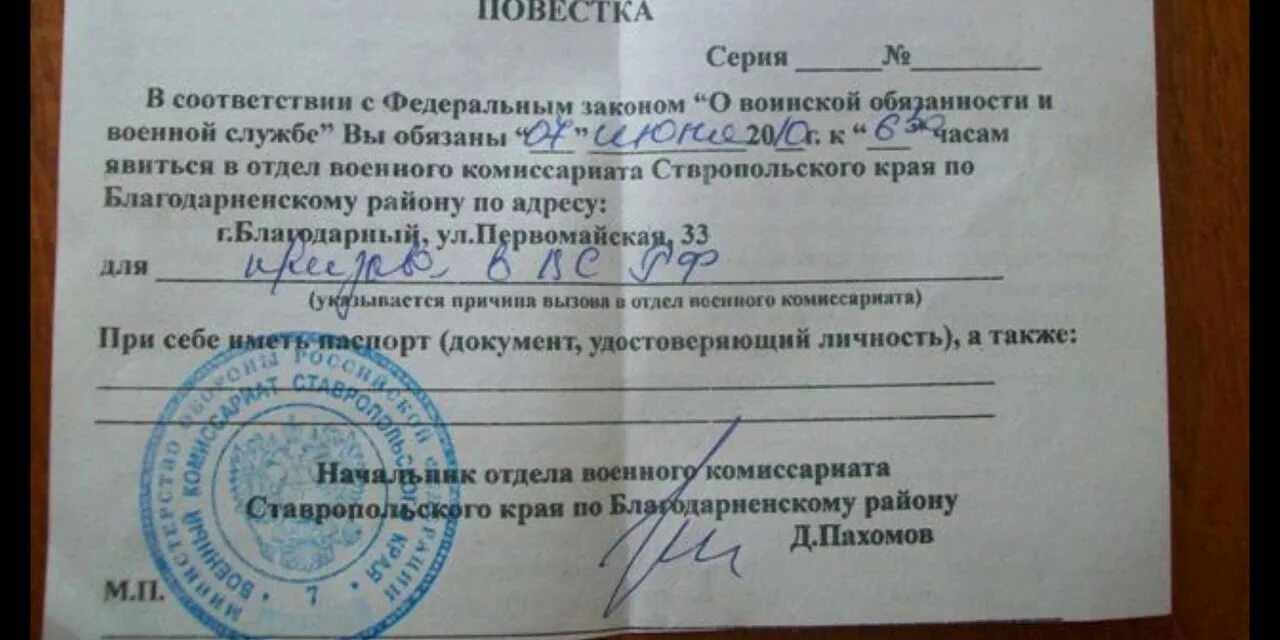 ПОВЕСТКА
Серия ______№_________
В соответствии с Федеральным законом “О воинской обязанности и
военной службе” Вы обязаны “07” июня 2010г. к “6 30 часам
явиться в отдел военного комиссариата Ствропольского края по
Благодарненскому району по адресу:
г.Благодарный, ул.Первомайская, 33
для призыва в ВС РФ
(указывается причина вызова в отдел военного комиссариата)
При себе иметь паспорт (документ, удостоверяющий личность), а также:
Начальник отдела военного комиссариата
Ставропольского края по Благодарненскому району
Д.Пахомов
М.П.
МИНИСТЕРСТВО ОБОРОНЫ РОССИЙСКОЙ ФЕДЕРАЦИИ
ВОЕННЫЙ КОМИССАРИАТ СТАВРОПОЛЬСКОГО КРАЯ
7